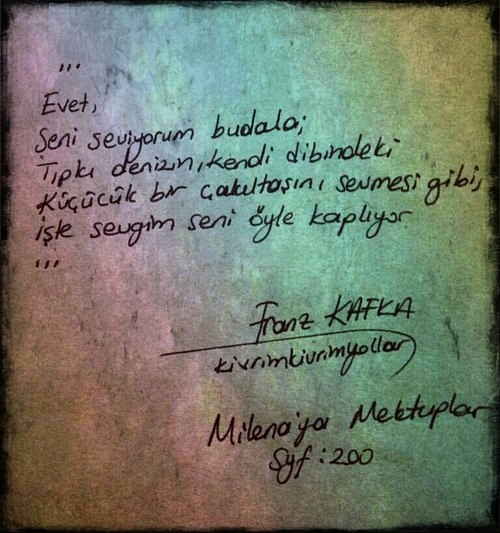 ...
Evet,
Seni seviyorum budala;
Tıpkı denizin, kendi dibindeki
Küçücük bir çakıltaşını sevmesi gibi,
işte sevgim seni öyle kaplıyor
...
Franz KAFKA
kivrimkivrimyollar
Milena'ya Mektuplar
Syf:200